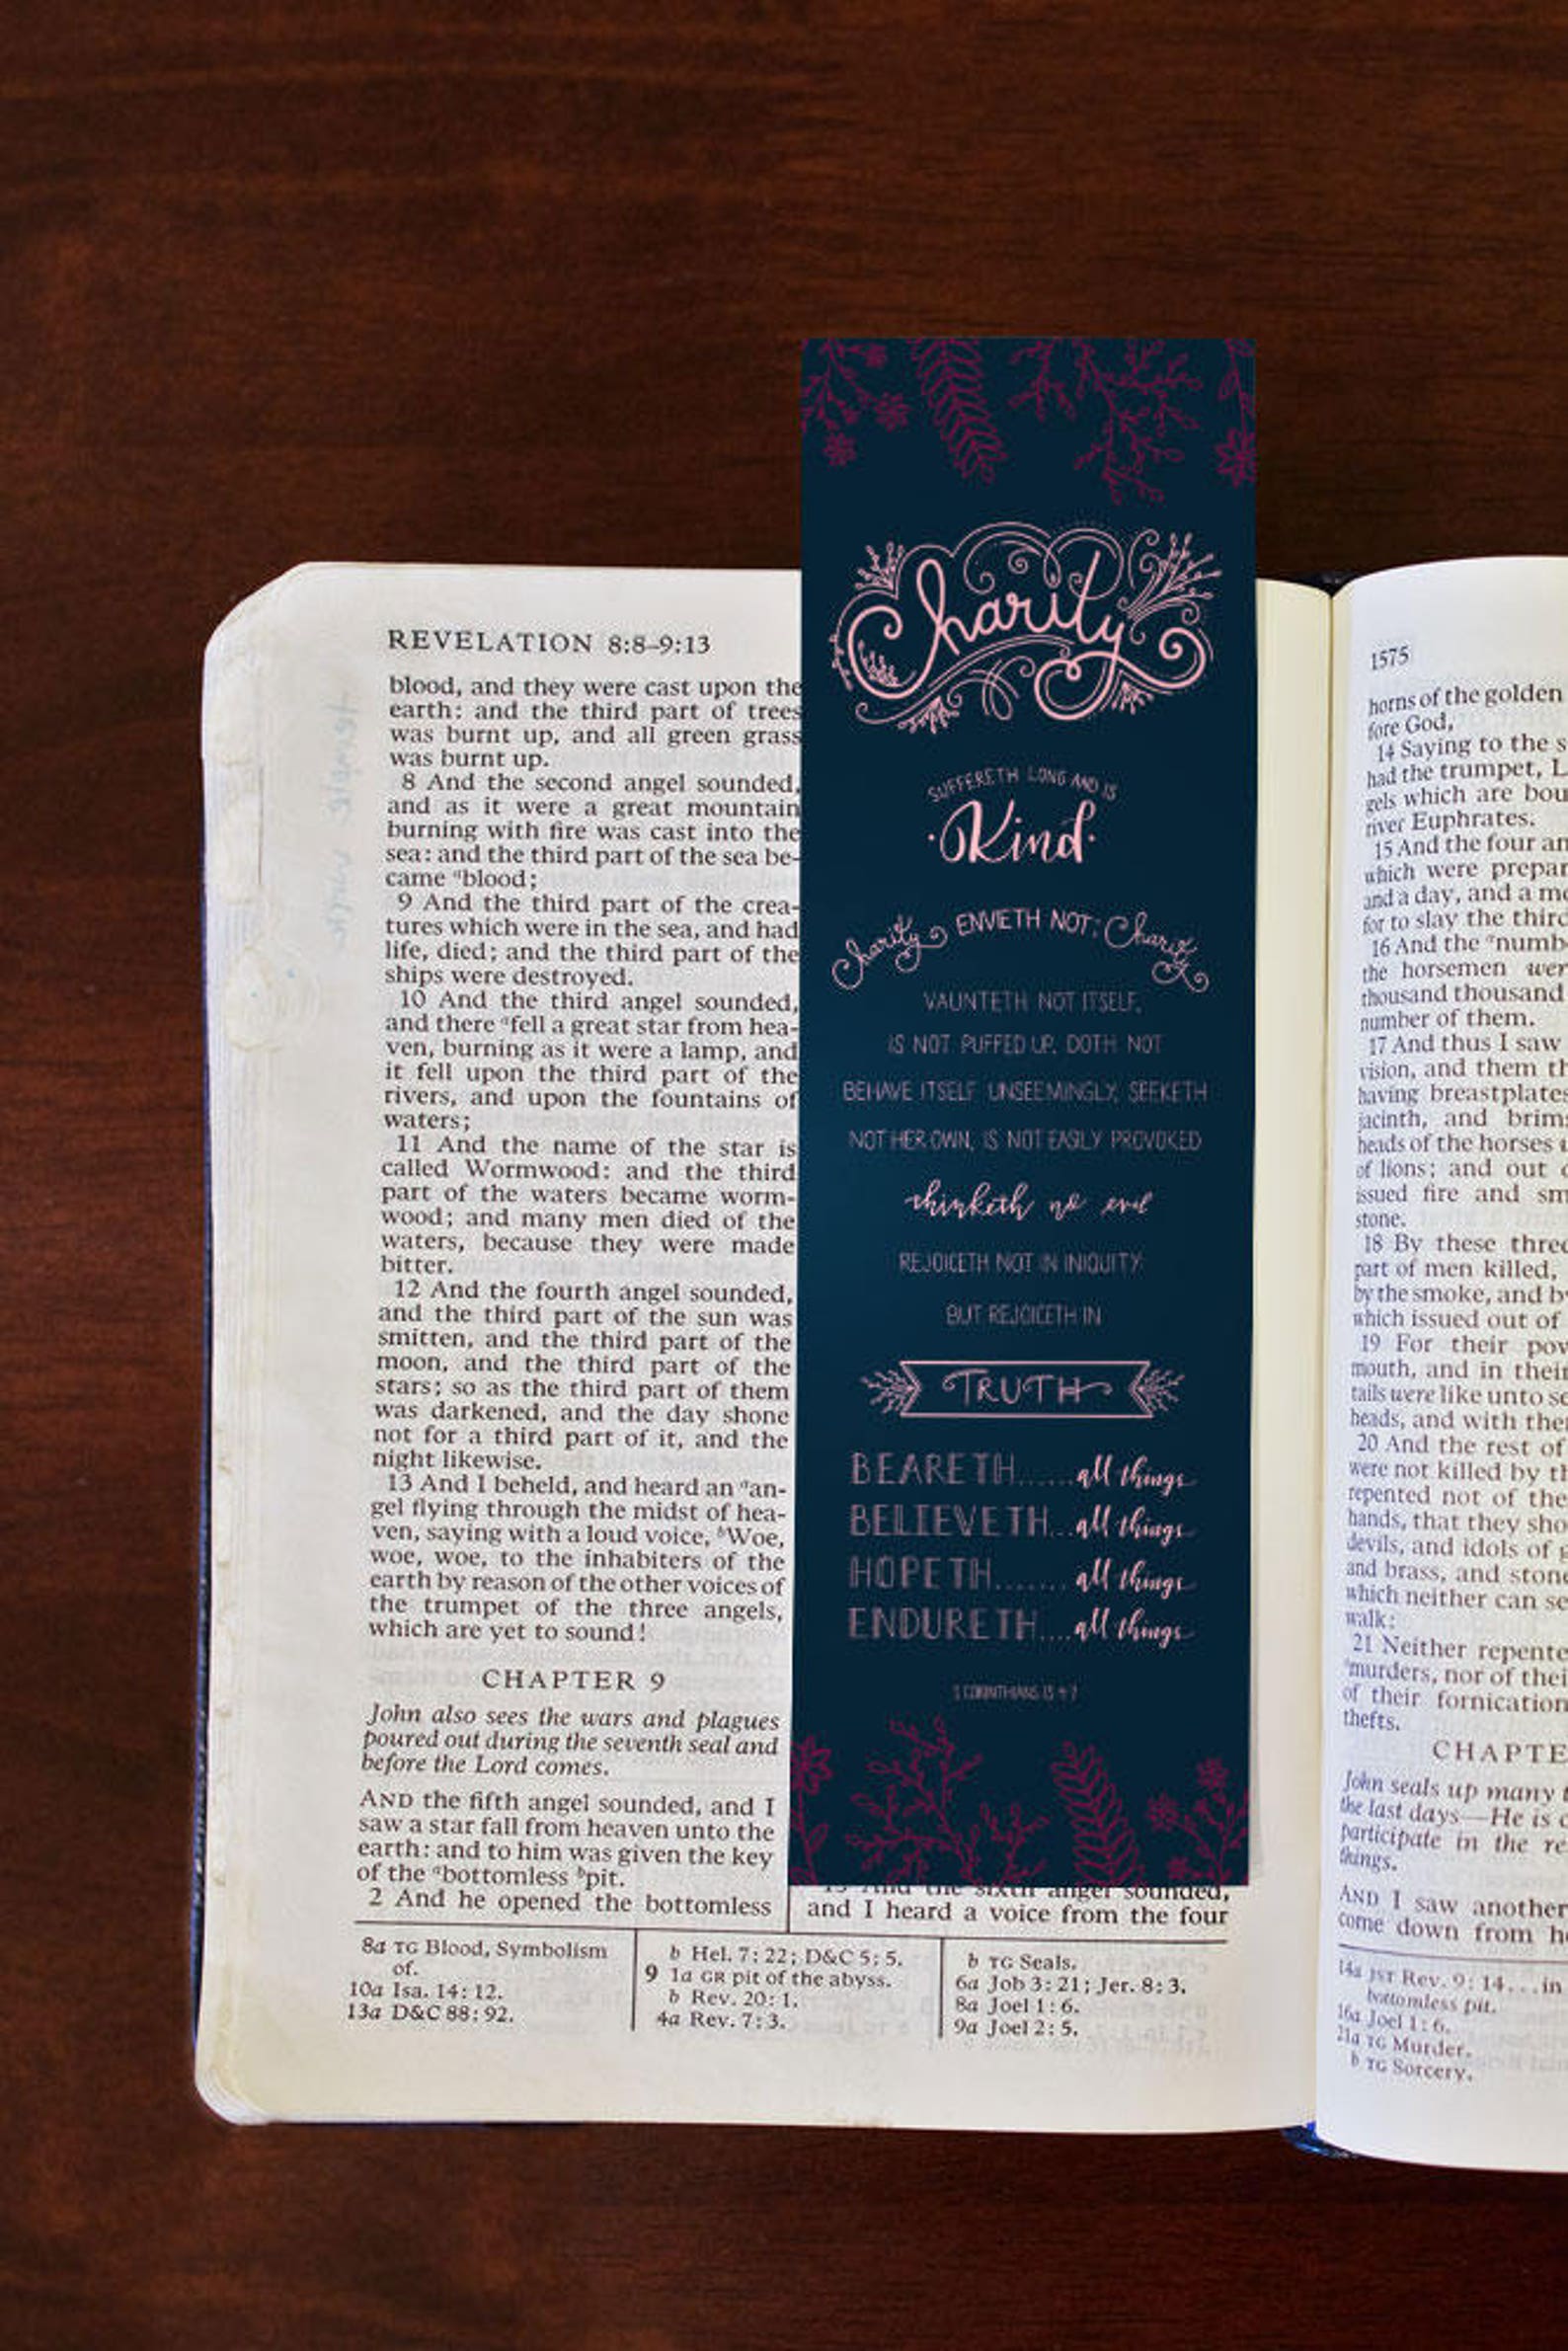 REVELATION 8:8–9:13
blood, and they were cast upon the
earth: and the third part of trees
was burnt up, and all green grass
was burnt up.
8 And the second angel sounded,
and as it were a great mountain
burning with fire was cast into the
sea: and the third part of the sea be-
came ᵃblood;
9 And the third part of the crea-
tures which were in the sea, and had
life, died; and the third part of the
ships were destroyed.
10 And the third angel sounded,
and there ᵃfell a great star from hea-
ven, burning as it were a lamp, and
it fell upon the third part of the
rivers, and upon the fountains of
waters;
11 And the name of the star is
called Wormwood: and the third
part of the waters became worm-
wood; and many men died of the
waters, because they were made
bitter.
12 And the fourth angel sounded,
and the third part of the sun was
smitten, and the third part of the
moon, and the third part of the
stars; so as the third part of them
was darkened, and the day shone
not for a third part of it, and the
night likewise.
13 And I beheld, and heard an ᵃan-
gel flying through the midst of hea-
ven, saying with a loud voice, ᵇWoe,
woe, woe, to the inhabiters of the
earth by reason of the other voices of
the trumpet of the three angels,
which are yet to sound!
CHAPTER 9
John also sees the wars and plagues
poured out during the seventh seal and
before the Lord comes.
AND the fifth angel sounded, and I
saw a star fall from heaven unto the
earth: and to him was given the key
of the ᵃbottomless ᵇpit.
2 And he opened the bottomless
Charity
SUFFERETH LONG AND IS
Kind
Charity ENVIETH NOT; Charity
VAUNTETH NOT ITSELF,
IS NOT PUFFED UP, DOTH NOT
BEHAVE ITSELF UNSEEMINGLY, SEEKETH
NOT HER OWN, IS NOT EASILY PROVOKED
thinketh no evil
REJOICETH NOT IN INIQUITY
BUT REJOICETH IN
TRUTH
BEARETH......all things
BELIEVETH...all things
HOPETH.......all things
ENDURETH....all things
1 CORINTHIANS 13 4-7
13 And the sixth angel sounded,
and I heard a voice from the four
8a TG Blood, Symbolism
of.
10a Isa. 14:12.
13a D&C 88:92.
b Hel. 7:22; D&C 5:5.
9 1a GR pit of the abyss.
b Rev. 20:1.
4a Rev. 7:3.
b TG Seals.
6a Job 3:21; Jer. 8:3.
8a Joel 1:6.
9a Joel 2:5.
1575
horns of the golden
fore God,
14 Saying to the s
had the trumpet, L
gels which are bou
river Euphrates.
15 And the four an
which were prepar
and a day, and a mo
for to slay the third
16 And the ᵃnumb
the horsemen wer
thousand thousand
number of them.
17 And thus I saw
vision, and them th
having breastplates
jacinth, and brims
heads of the horses
of lions; and out o
issued fire and sm
stone.
18 By these three
part of men killed,
by the smoke, and by
which issued out of
19 For their pow
mouth, and in their
tails were like unto se
heads, and with the
20 And the rest of
were not killed by th
repented not of the
hands, that they sho
devils, and idols of g
and brass, and stone
which neither can se
walk:
21 Neither repente
ᵃmurders, nor of thei
of their fornication
thefts.
CHAPTE
John seals up many t
the last days—He is c
participate in the re
things.
AND I saw another
come down from he
14a JST Rev. 9:14...in
bottomless pit.
16a Joel 1:6.
21a TG Murder.
b TG Sorcery.